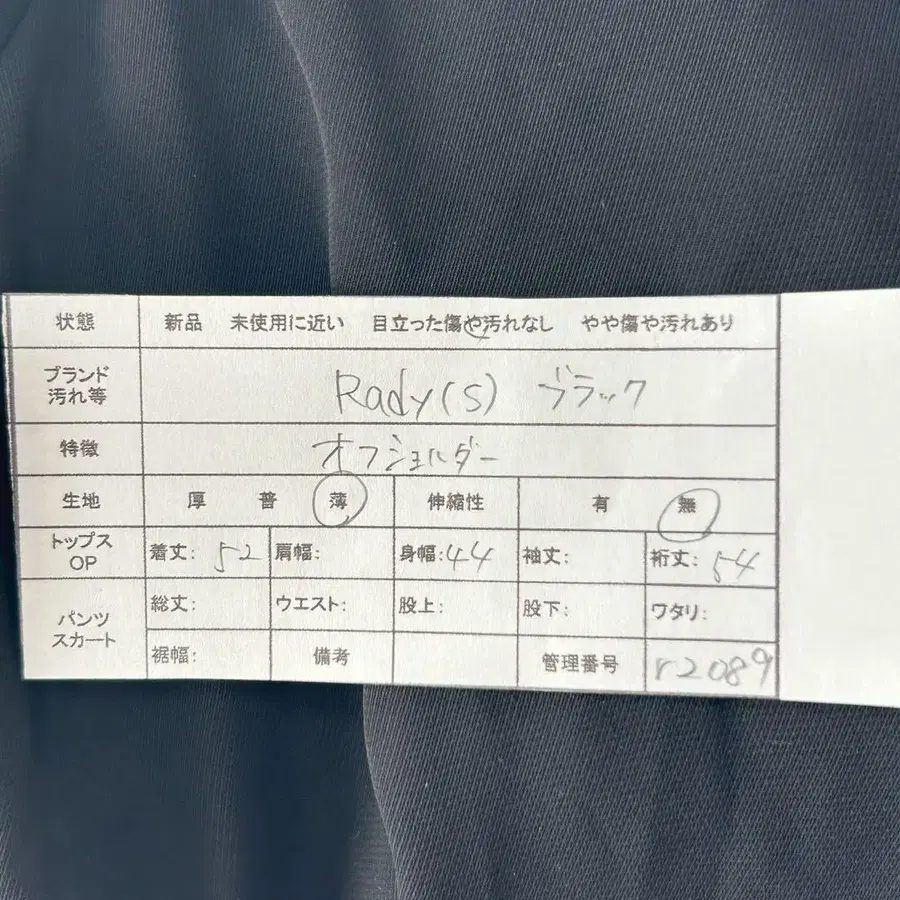 状態 新品 未使用に近い 目立った傷や汚れなし やや傷や汚れあり
ブランド
汚れ等
Rady(S) ブラック
特徴 オフショルダー
生地 厚 普 薄 伸縮性 有 無
トップス
OP
着丈: 52 肩幅: 身幅: 44 袖丈: 裄丈: 54
パンツ
スカート
総丈: ウエスト: 股上: 股下: ワタリ:
裾幅: 備考 管理番号 r2089